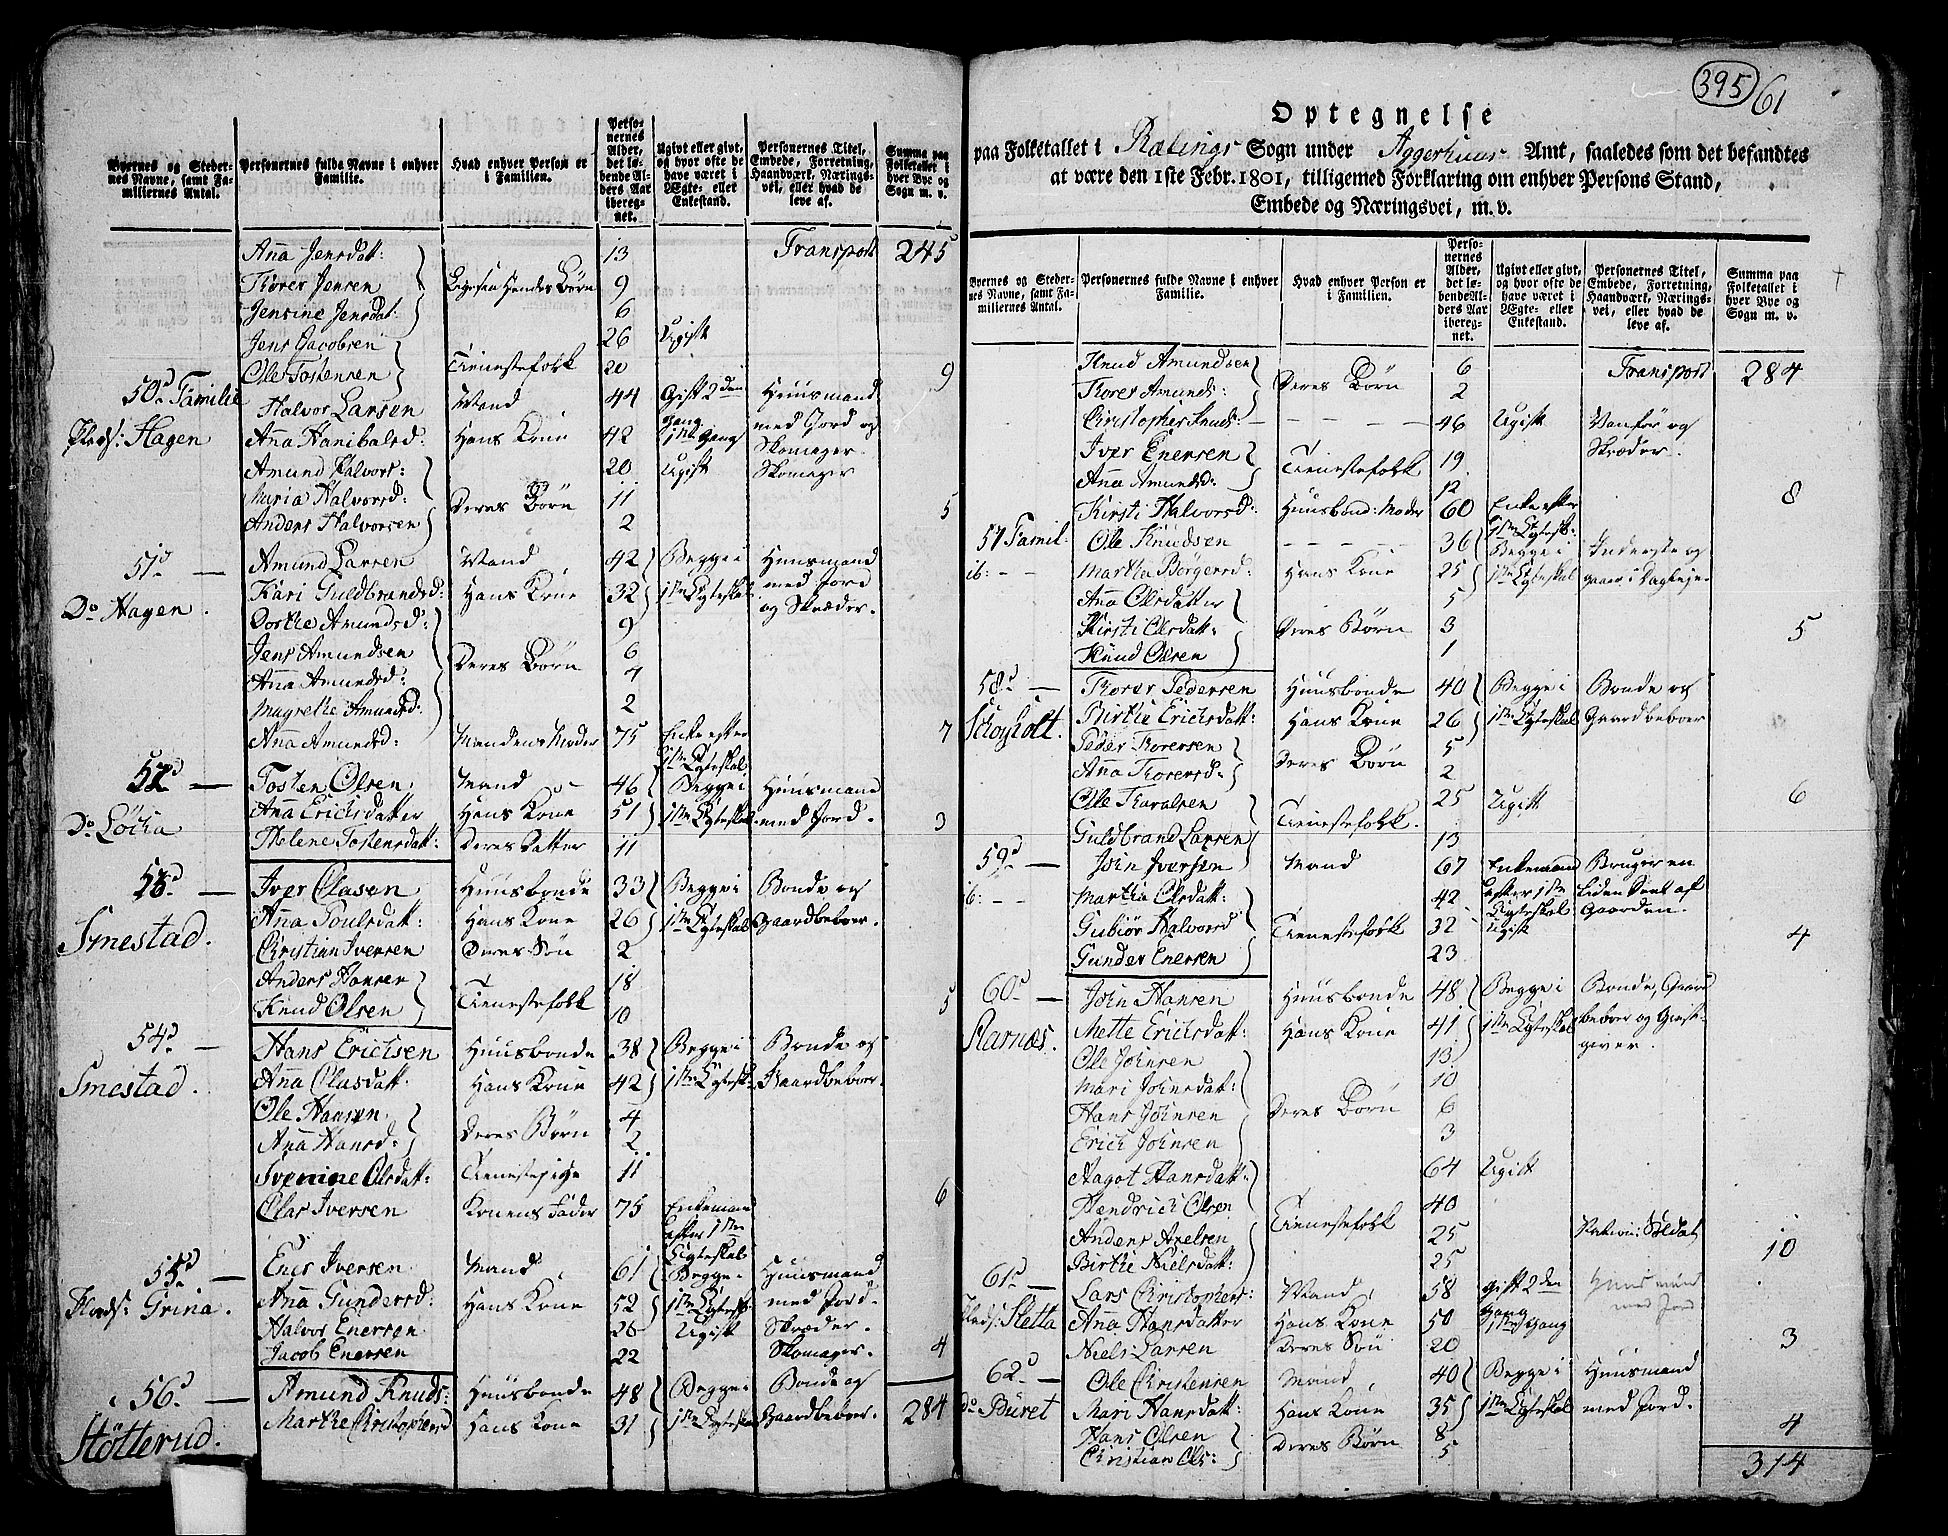 Byernes og Steder-
nes Navne, samt Fa-
miliernes Antal.
Personernes fulde Navne i enhver
Familie.
Hvad enhver Person er
i Familien.
Perso-
nernes
Alder,
det lø-
bende Al-
ders Aar
ibereg-
net.
Ugivt eller givt,
og hvor ofte de
have været i
Ægte- eller
Enkestand.
Personernes Titel,
Embede, Forretning,
Haandværk, Nærings-
vei, eller hvad de
leve af.
Summa paa
Folketallet i
hver Bye og
Sogn m. v.
Anna Jensdatt: 13 Transport 245
Torer Jensen Børn 9
Jensine Jensdat: 6
Jens Jacobsen 26 Ugift
Ole Tostensen Tienestefolk 20 9
50d Familie Halvor Larsen Mand 44 Gift 2den Gang Huusmand
Plads: Hagen Anna Hanibalsd: Hans Kone 42 1ste Gang med Jord og Skomager
Amund Halvors: 20 Ugift Skomager
Maria Halvorsd: Deres Børn 11
Anders Halvorsen 2 5
51d — Amund Larsen Mand 42 Begge i Huusmand
Do Hagen. Kari Guldbrandsd: Hans Kone 32 1ste Egteskab med Jord og Skræder.
Dorthe Amundsd: 9
Jens Amundsen Deres Børn 6
Anna Amundsd: 4
Magrethe Amundsd: 2
Anna Amundsd: Mandens Moder 75 Enke efter 1ste Egteskab 7
52d — Tosten Olsen Mand 46 Begge i Huusmand
Do Løcka Anna Erichsdatter Hans Kone 51 1ste Egteskab med Jord.
Helene Tostensdatt: Deres Datter 11 3
53d — Iver Olasen Huusbonde 33 Begge i Bonde og
Smestad. Anna Poulsdatt: Hans Kone 26 1ste Egteskab Gaardbeboer.
Christian Iversen Deres Søn 2
Anders Hansen Tienestefolk 18
Knud Olsen 10 5
54d — Hans Erichsen Huusbonde 38 Begge i Bonde og
Smestad. Anna Olasdatt: Hans Kone 42 1ste Egtesk: Gaardbeboer
Ole Hansen Deres Børn 4
Anna Hansd: 2
Svenine Olsdatt: Tienestepige 11
Olas Iversen Konens Fader 75 Enkemand efter 1ste Egteskab 6
55d — Ener Iversen Mand 61 Begge i Huusmand
Plads: Grina. Anna Gundersd: Hans Kone 52 1ste Egtesk: med Jord.
Halvor Enersen 26 Ugift Skræder.
Jacob Enersen 22 Skomager. 4
56d — Amund Knuds: Huusbonde 48 Begge i Bonde og
Støtterud. Marthe Christophersd Hans Kone 31 1ste Egteskab Gaardbeboer. 284
395 61
Optegnelse
paa Folketallet i Rælings Sogn under Aggerhuus Amt, saaledes som det befandtes
at være den 1ste Febr. 1801, tilligemed Forklaring om enhver Persons Stand,
Embede og Næringsvei, m. v.
Byernes og Steder-
nes Navne, samt Fa-
miliernes Antal.
Personernes fulde Navne i enhver
Familie.
Hvad enhver Person er
i Familien.
Perso-
nernes
Alder,
det lø-
bende Al-
ders Aar
ibereg-
net.
Ugivt eller givt,
og hvor ofte de
have været i
Ægte- eller
Enkestand.
Personernes Titel,
Embede, Forretning,
Haandværk, Nærings-
vei, eller hvad de
leve af.
Summa paa
Folketallet i
hver Bye og
Sogn m. v.
Knud Amundsen Deres Børn 6 Transport 284
Torer Amunds: 2
Christopher Knuds: — — — — 46 Ugift Vanfør og Skræder.
Iver Enersen Tienestefolk 19
Anna Amundsd: 12
Kirsti Halvorsd: Huusbond: Moder 60 Enke efter 1ste Egtesk: 8
57 Famil: Ole Knudsen — — — — 36 Begge i Inderste og
ib: — — Martha Børgersd: Hans Kone 25 1ste Egteskab
Anna Olsdatter 5
Kirsti Olsdatt: Deres Børn 3
Knud Olsen 1 5
58d — Thorer Pedersen Huusbonde 40 Begge i Bonde og
Birthe Erichsdatt: Hans Kone 26 1ste Egteskab Gaardbeboer
Peder Thorersen Deres Børn 5
Anna Thorersd: 2
Ole Thoralsen Tienestefolk. 25 Ugift 6
Guldbrand Larsen 13
59d — John Iversen Mand 67 Enkemand efter 1ste Egteskab Bruger en liden Deel af Gaarden.
ib: — — Martha Olsdatt: 42
Gubiør Halvorsd Tienestefolk 32 Ugift
Gunder Enersen 23 4
60d — John Hansen Huusbonde 48 Begge i Bonde, Gaard
Rarnæs. Mette Erichsdatt: Hans Kone 41 1ste Egteskab beboer og Giest-
giver.
Ole Johnsen 13
Mari Johnsdatt: 10
Hans Johnsen Deres Børn 6
Erich Johnsen 3
Aagot Hansdatt: 64 Ugift
Hendrich Olsen 40
Anders Axelsen Tienestefolk 25 Nation: Soldat
Birthe Nielsdatt: 25 10
61d — Lars Christophers: Mand 58 gift 2den Gang Huusmand med Jord
Plads: Sletta Anna Hansdatter Hans Kone 50 1ste Gang
Niels Larsen Deres Søn 20 3
62d — Ole Christensen Mand 40 Begge i Huusmand
do Buret Mari Hansdatt: Hans Kone 35 1ste Egteskab med Jord.
Hans Olsen Deres Børn 8
Christian Ols: 5 4
314